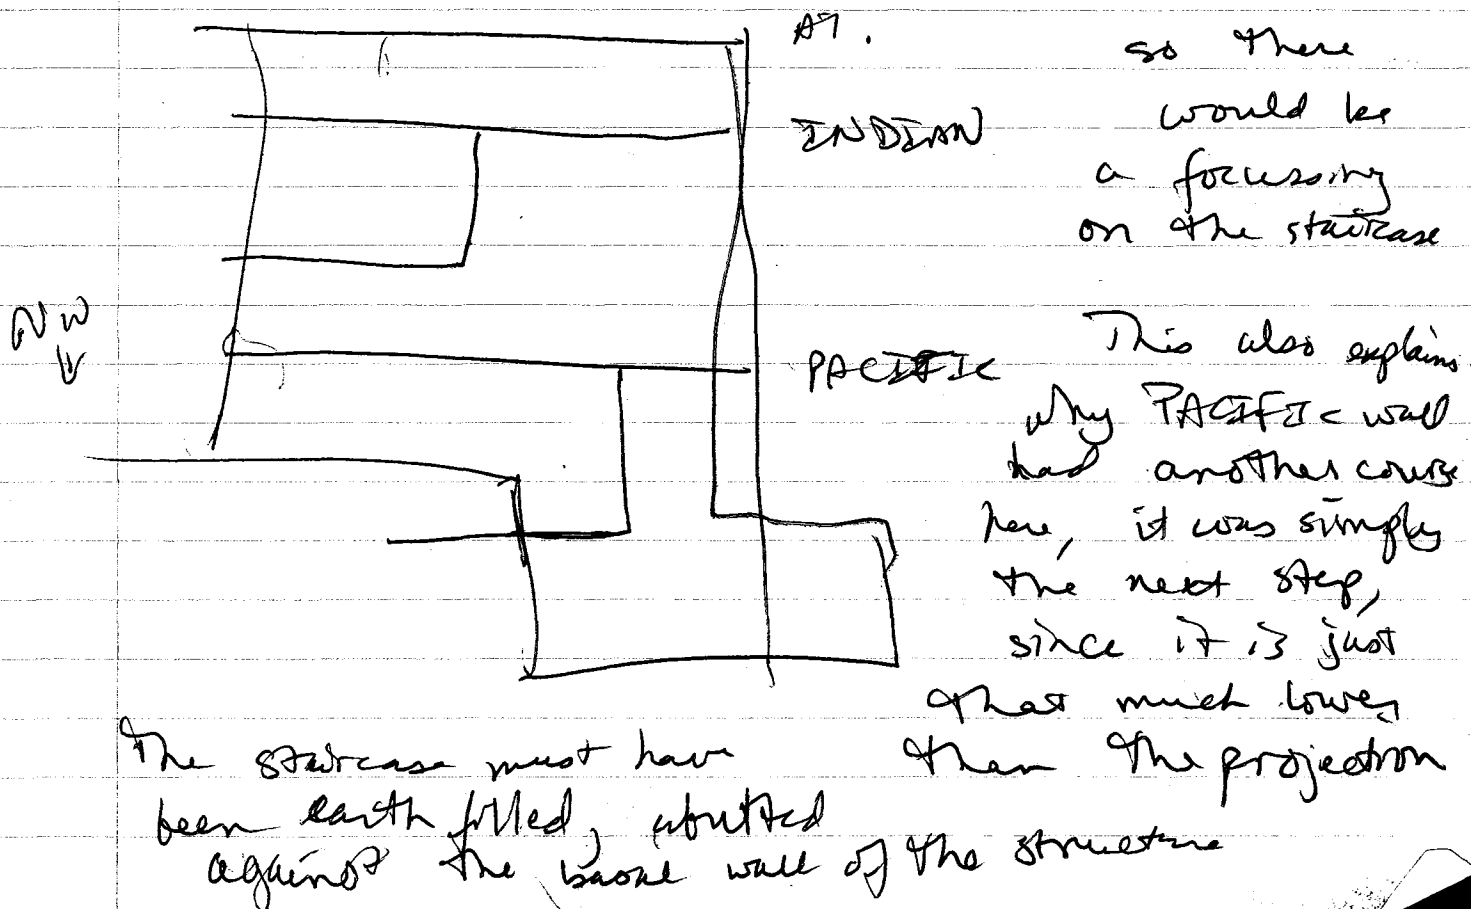 AT.
INDIAN
PACIFIC
NW
so there
would be
a focussing
on the staircase
This also explains
why PACIFIC wall
had another course
here, it was simply
the next step,
since it is just
that much lower
than the projection
The staircase must have
been earth filled, abutted
against the basal wall of the structure